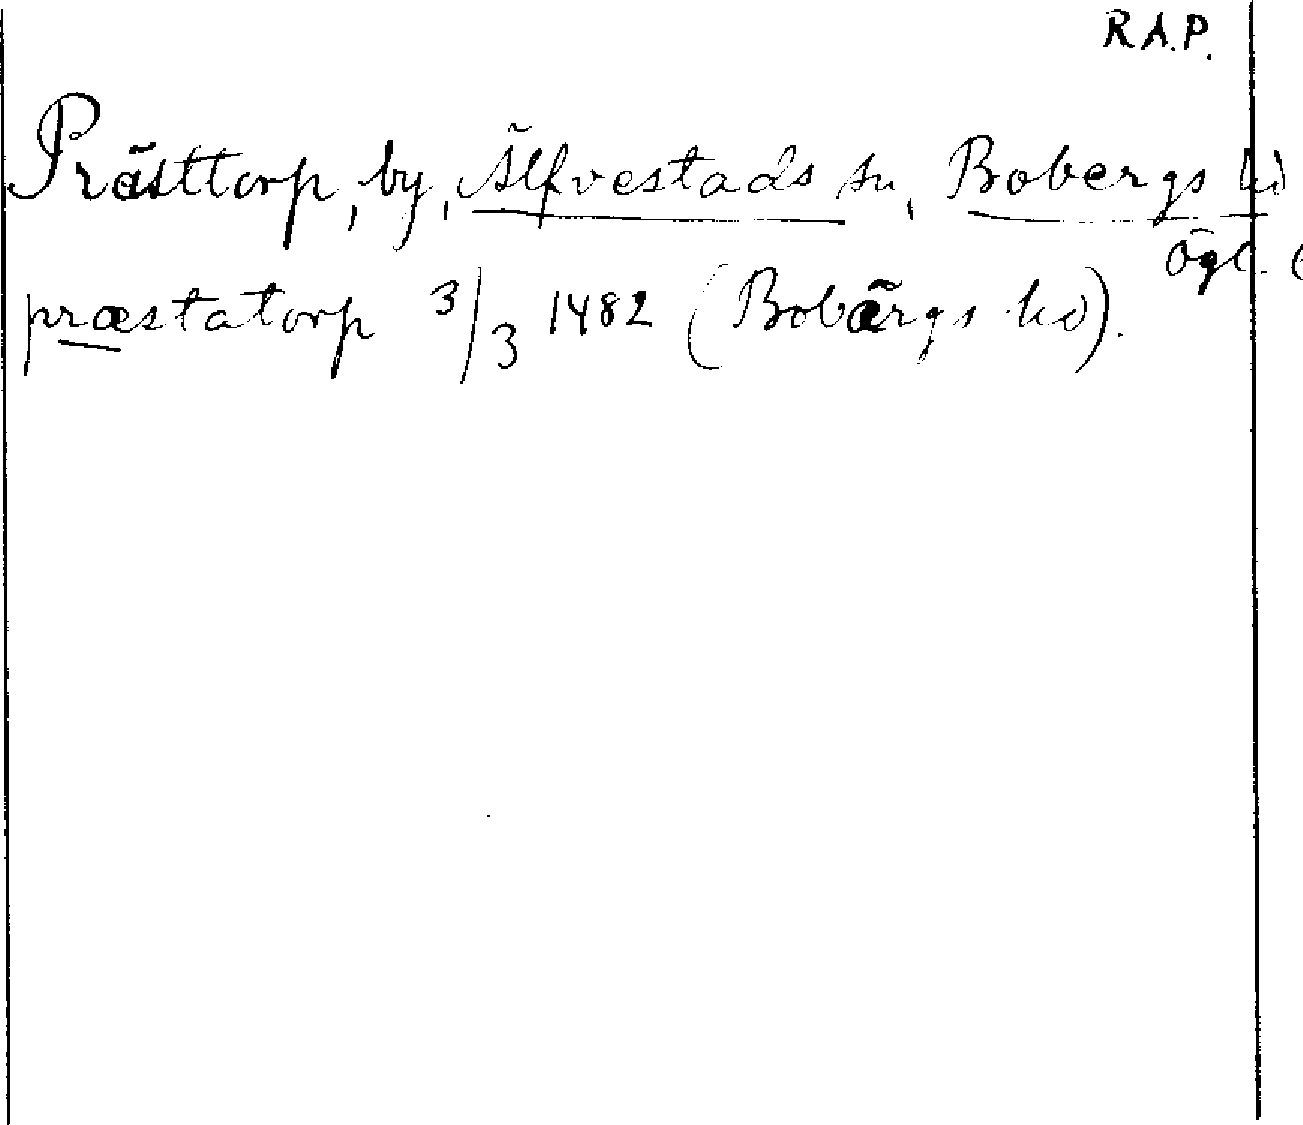 R.A.P.
Prästtorp, by, Älfvestads sn, Bobergs hd
Ögl.
præstatorp 3/3 1482 (Bobärgs hd).